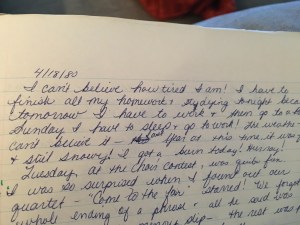 4/18/80
I can't believe how tired I am! I have to
finish all my homework & studying tonight because
tomorrow I have to work & then go to a
Sunday I have to sleep & go to work! The weather
can't believe it - last year at this time it was
& still snowy! I got a burn today! Hurray!
Tuesday, at the choir contest, was
I was so surprised when I found out our
quartet - "Come to the fair" starred! We forgot
whole ending of a phrase & all he said was
slip - the rest was